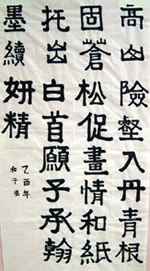 高山險壑入丹青根
固蒼松促畫情和紙
托出白首願子承翰
墨續妍精
乙酉年
和子